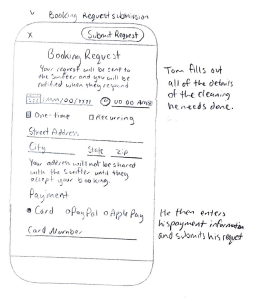 Booking Request submission
X Submit Request
Booking Request
Your request will be sent to
the Swifter and you will be
notified when they respond
00 00 AM
One-time Recurring
Street Address
City State Zip
Your address will not be shared
with the Swifter until they
accept your booking.
Payment
Card PayPal Apple Pay
Card Number
Tom fills out
all of the details
of the cleaning
he needs done.
He then enters
his payment information
and submits his request